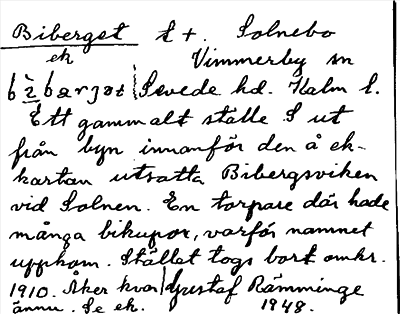 Biberget t +. Solnebo
ek Vimmerby sn
Sevede hd. Kalm l.
Ett gammalt ställe S ut
från byn innanför den å ek-
kartan utsatta Bibergsviken
vid Solnen. En torpare där hade
många bikupor, varför namnet
uppkom. Stället togs bort omkr.
1910. Åker kvar Gustaf Rämminge
ännu. Se ek. 1948.